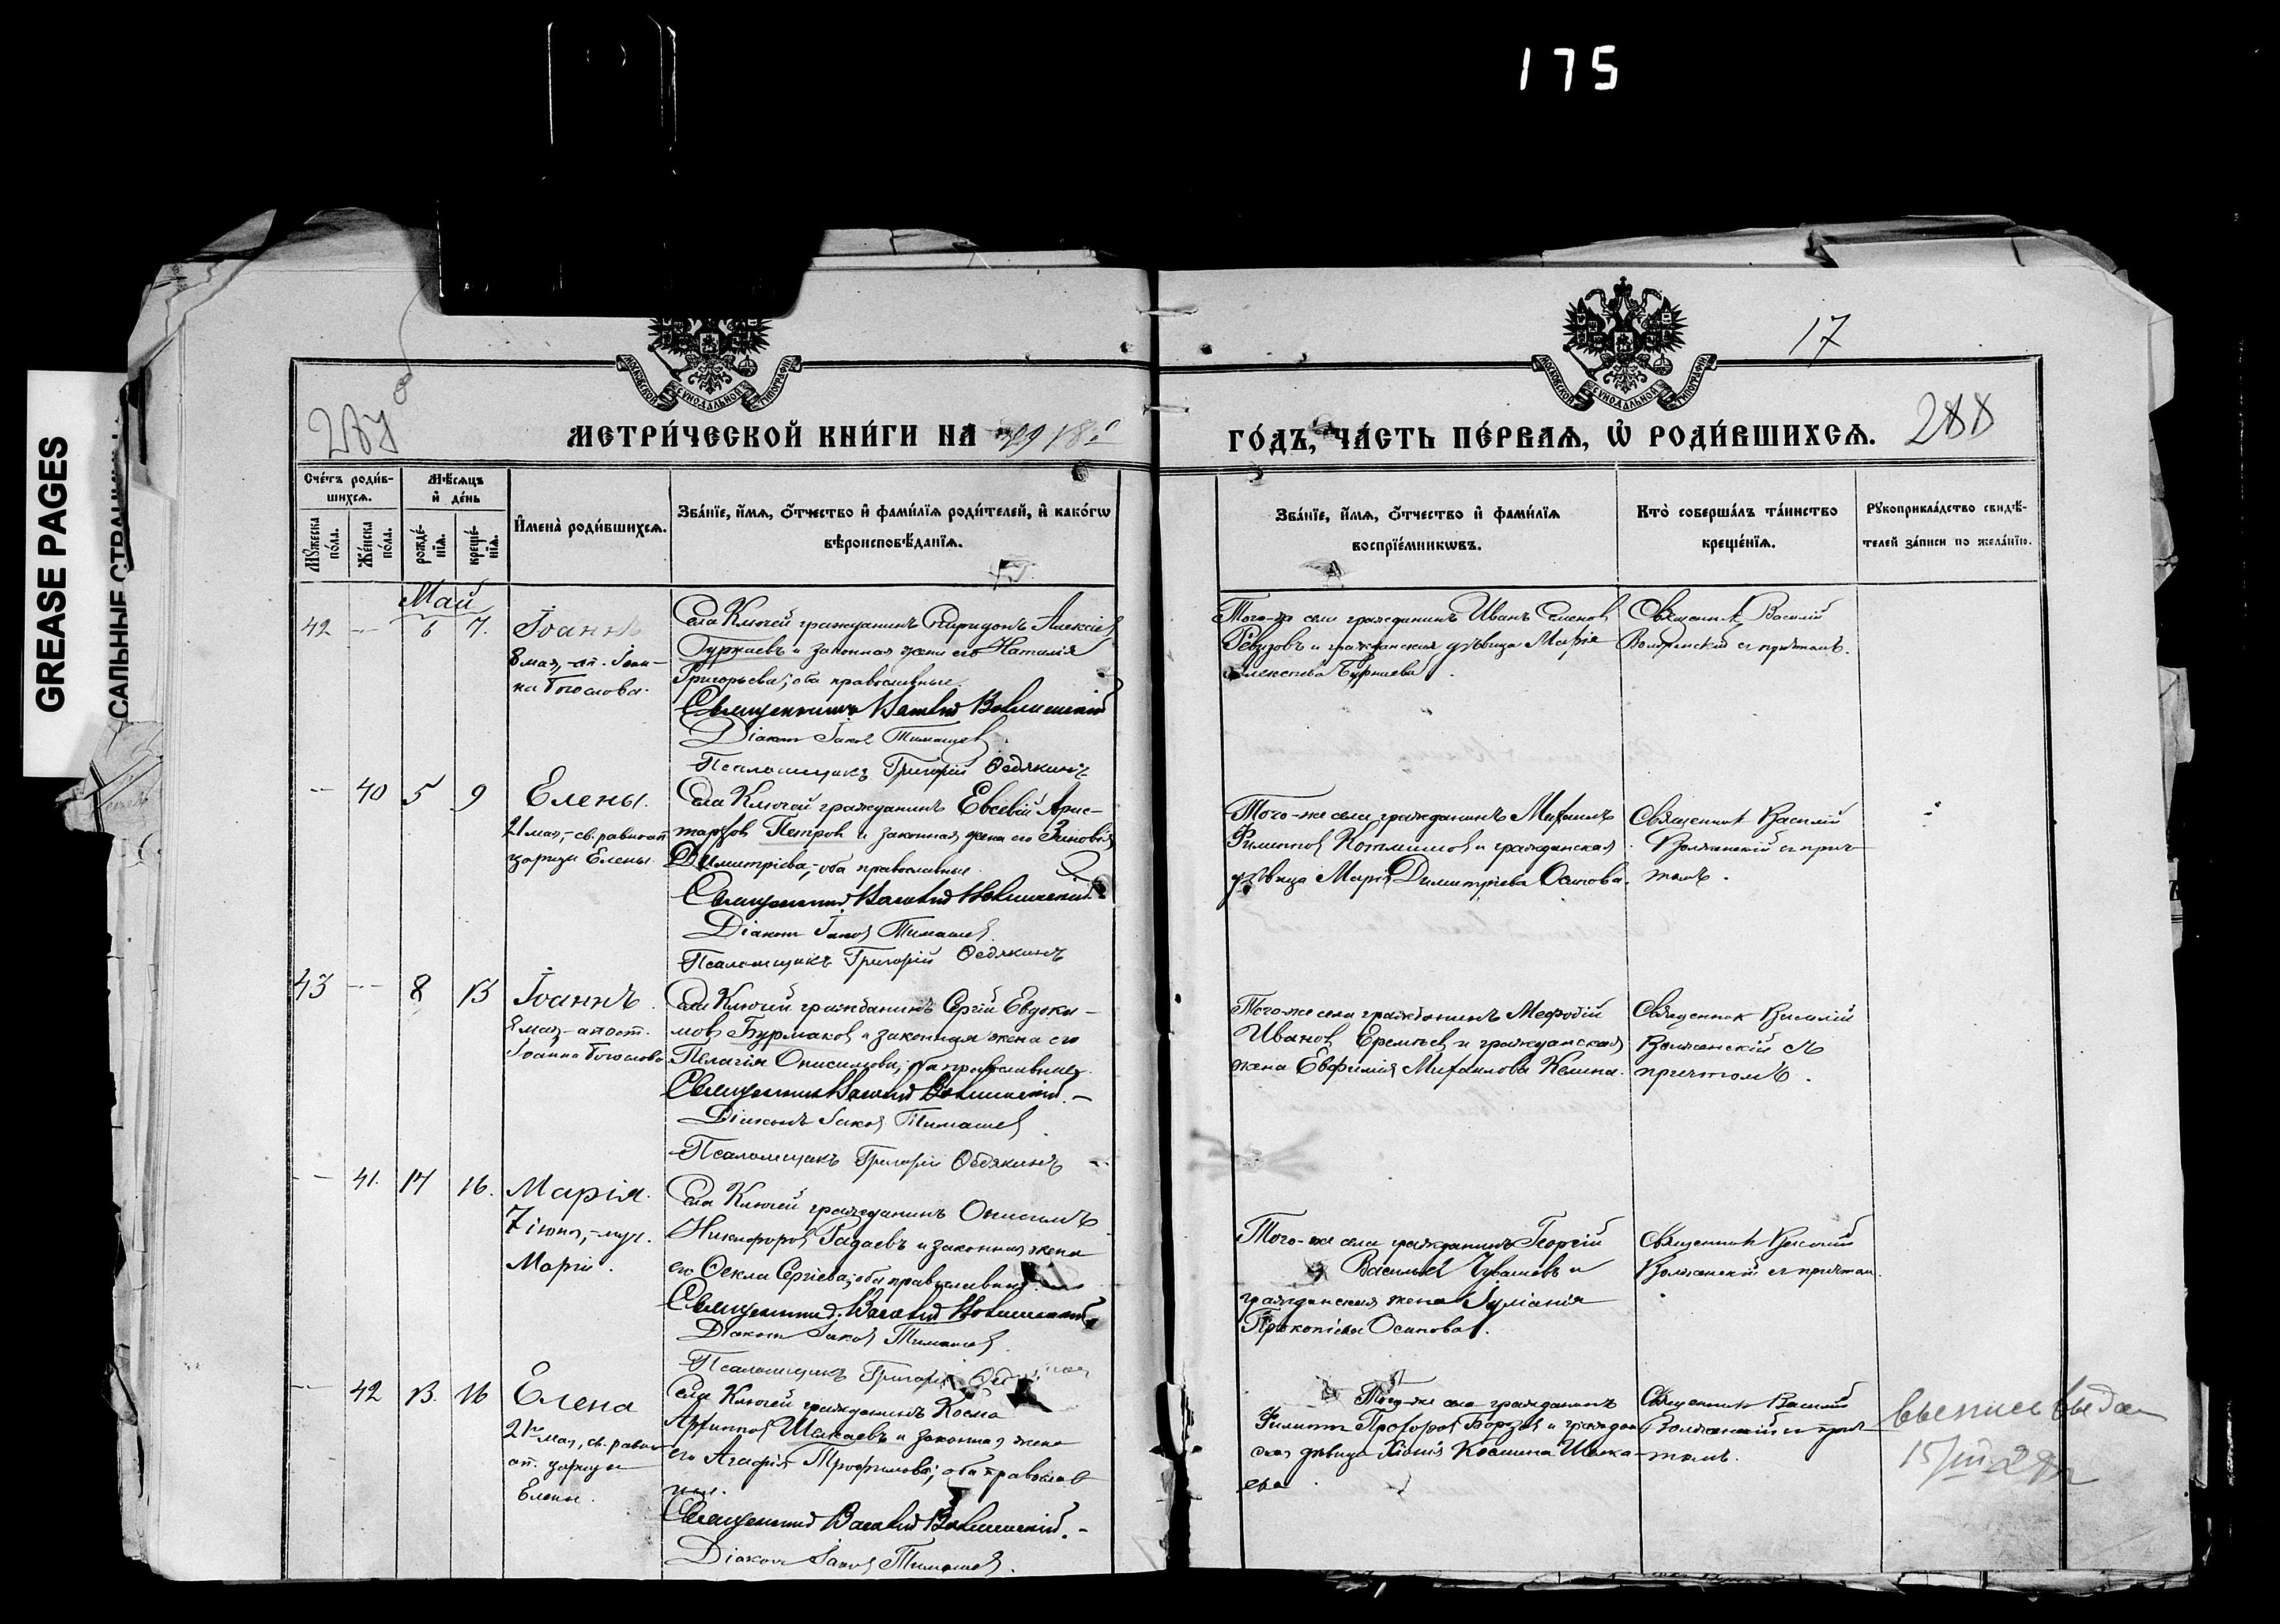 175
GREASE PAGES
САЛЬНЫЕ СТРАНИЦЫ
17
287
288
МОСКОВСКОЙ СѴНОДАЛЬНОЙ ТИПОГРАФІИ
МОСКОВСКОЙ СѴНОДАЛЬНОЙ ТИПОГРАФІИ
МЕТРИ́ЧЕСКОЙ КНИ́ГИ НА 1918й
ГО́ДЪ, ЧА́СТЬ ПЕ́РВАѦ, Ѡ РОДИ́ВШИХСѦ.
Сче́тъ роди́в-
шихсѧ.
Му́жеска по́ла.
Же́нска по́ла.
Мѣ́сѧцъ
и де́нь
рожде́-
нїѧ.
креще́-
нїѧ.
Имена̀ роди́вшихсѧ.
Зва́нїе, и́мѧ, о́тчество и фами́лїѧ роди́телей, и како́гѡ
вѣроисповѣ́данїѧ.
Зва́нїе, и́мѧ, о́тчество и фами́лїѧ
воспрїе́мникѡвъ.
Кто̀ соверша́лъ та́инство
креще́нїѧ.
Рꙋкоприкла́дство свидѣ́-
телей за́писи по жела́нїю.
Май
42 -- 6 7.
Іоаннъ
8 мая,-ап. Іоан-
на Богослова.
Села Ключей гражданинъ Спиридонъ Алексіев
Гуржаевъ и законная жена его Наталія
Григорьева; оба православные.
Священникъ Василій Волженскій
Діаконъ Іаковъ Тимашев
Псаломщикъ Григорій Федякинъ
Того-же села гражданинъ Иванъ Семенов
Ревузовъ и гражданская дѣвица Марія
Священник Василій
Волженскій съ причтомъ.
-- 40 5 9
Елены.
21 мая,-св. равноап.
царицы Елены.
Села Ключей гражданинъ Евсевій Арис-
тархов Петров и законная жена его Зиновія
Димитріева,-оба православные.
Священник Василій Волженскій.
Діаконъ Іаковъ Тимашев
Псаломщикъ Григорій Федякинъ
Того-же села гражданинъ Михаилъ
Филиппов и гражданская
дѣвица Марія Димитріева Осипова.
Священник Василій
Волженскій съ прич-
томъ.
43 -- 8 13
Іоаннъ.
8 мая-апост.
Іоанна Богослова
Села Ключей гражданинъ Сергій Евдоки-
мовъ Бурмаков и законная жена его
Пелагія Онисимова; оба православные.
Священник Василій Волженскій.-
Діаконъ Іаковъ Тимашев
Псаломщикъ Григорій Федякинъ
Того-же села гражданинъ Мефодій
Иванов Еремѣев и гражданская
жена Евфимія Михаилова Келина.
Священник Василій
Волженскій съ
причтомъ.
-- 41. 14 16.
Марія.
7 іюня,-муч.
Маріи.
Села Ключей гражданинъ Онисимъ
Никифоров Гадаевъ и законная жена
его Фекла Сергіева; оба православные.
Священник Василій Волженскій
Діаконъ Іаковъ Тимашев
Псаломщикъ Григорій
Того-же села гражданинъ Георгій
Васильев Чувашевъ и
гражданская жена Іуліанія
Прокопіева Осипова.
Священник Василій
Волженскій съ причтом.
-- 42 13. 16
Елена
21го мая, св. равно-
ап. царицы
Елены.
Села Ключей гражданинъ Косма
Архиппов Шакаевъ и законная жена
его Агафія Трофимова; оба православ
ные.
Священник Василій Волженскій.-
Діаконъ Іаковъ Тимашев.
Того-же села гражданинъ
Филиппъ Прохоров Борзов и граждан
ская дѣвица Хіонія Космина Шака-
ева
Священник Василій
Волженскій съ прич-
томъ.
выпись выдан
15/III-29г